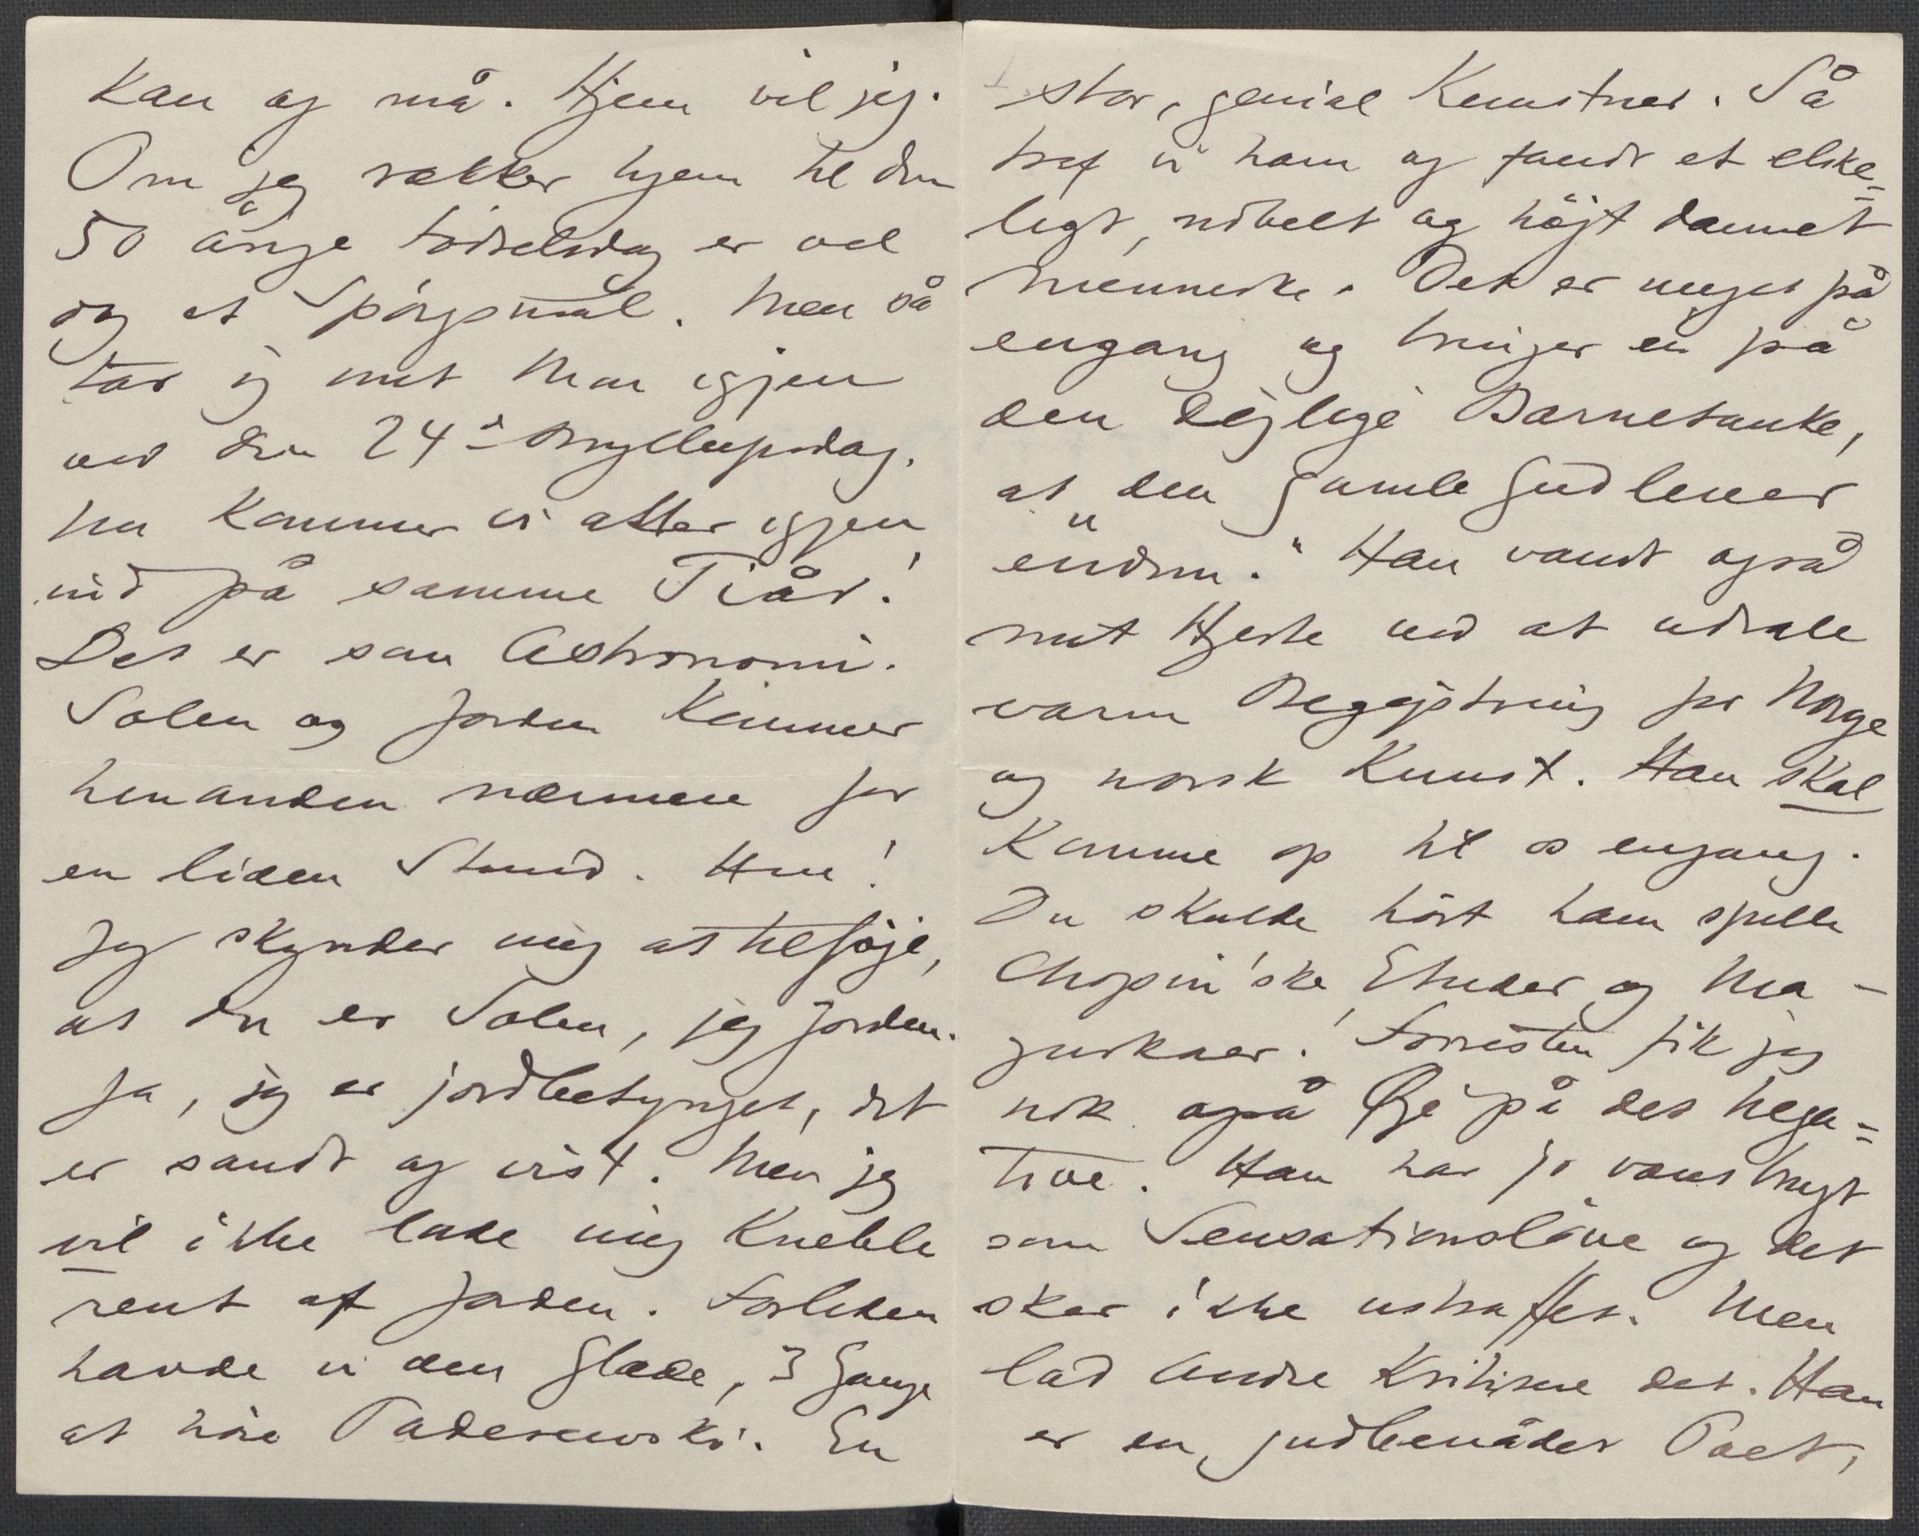 kan og må. Hjem vil jeg.
Om jeg rækker hjem til din
50 årige Fødselsdag er vel
dog et Spørgsmål. Men så
tar jeg mit Mon igjen
ved din 24de Bryllupsdag.
Nu kommer vi atter igjen
ind på samme Tiår!
Det er som Astronomi.
Solen og Jorden kommer
hinanden nærmere for
en liden Stund. Hm!
Jeg skynder mig at tilføje,
at du er Solen, jeg Jorden.
Ja, jeg er jordbetynget, det
er sandt og vist. Men jeg
vil ikke lade mig kneble
rent af Jorden. Forleden
havde vi den Glæde, 3 Gange
at høre Paderewski. En
stor, genial Kunstner. Så
traf vi ham og fandt et elske=
ligt, nobelt og højt dannet
Menneske. Det er meget på
engang og bringer en på
den dejlige Barnetanke,
at „den gamle Gud lever
endnu." Han vandt også
mit Hjerte ved at udtale
varm Begejstring for Norge
og norsk Kunst. Han skal
komme op til os engang.
Du skulde hørt ham spille
Chopin'ske Etuder og Ma-
zurkaer! Forresten fik jeg
nok også Øje på det Nega=
tive. Han har jo været brugt
som Sensationsløve og det
sker ikke ustraffet. Men
lad Andre kritisere det. Han
er en gudbenådet Poet,